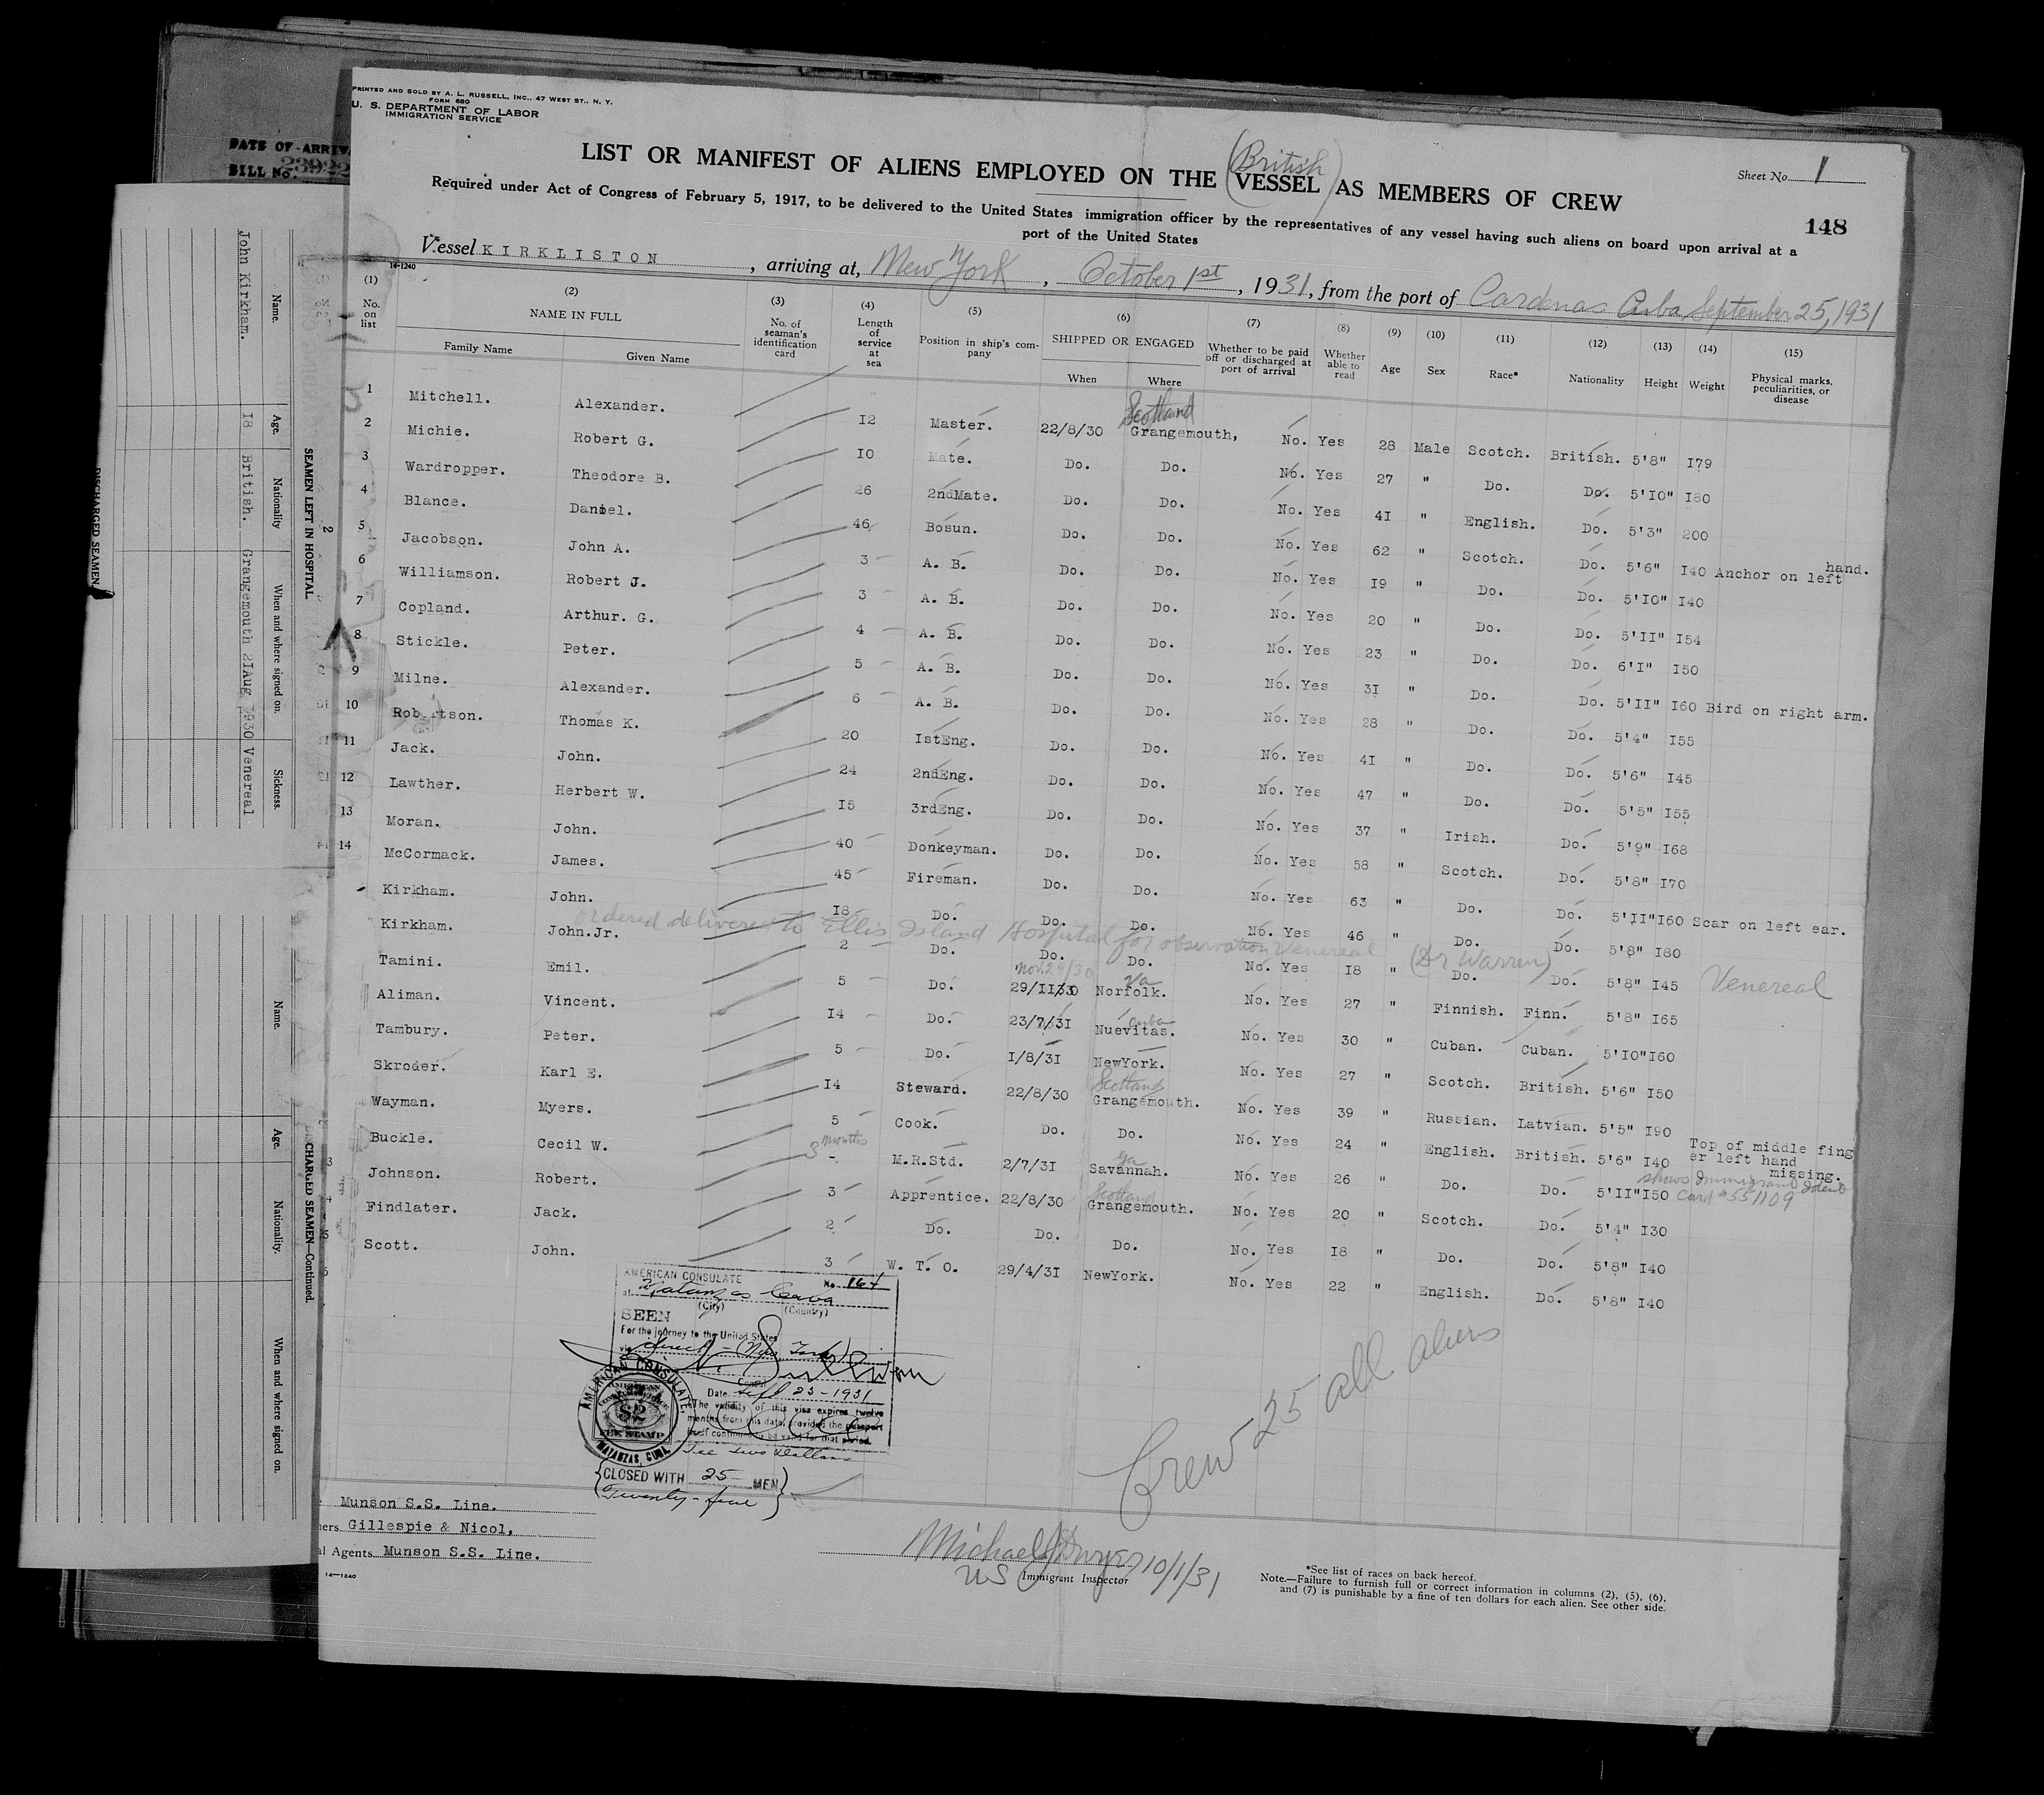 PRINTED AND SOLD BY A. L. RUSSELL, INC., 47 WEST ST., N. Y.
FORM 680
U. S. DEPARTMENT OF LABOR
IMMIGRATION SERVICE
DATE OF ARRIV
BILL No. 23922
LIST OR MANIFEST OF ALIENS EMPLOYED ON THE (British) VESSEL AS MEMBERS OF CREW
Sheet No. 1
148
Required under Act of Congress of February 5, 1917, to be delivered to the United States immigration officer by the representatives of any vessel having such aliens on board upon arrival at a
port of the United States
Vessel KIRKLISTON, arriving at, New York, October 1st, 1931, from the port of Cardenas Cuba September 25, 1931
14-1240
(1) No. on list
(2) NAME IN FULL Family Name Given Name
(3) No. of seaman's identification card
(4) Length of service at sea
(5) Position in ship's company
(6) SHIPPED OR ENGAGED When Where
(7) Whether to be paid off or discharged at port of arrival
(8) Whether able to read
(9) Age
(10) Sex
(11) Race*
(12) Nationality
(13) Height
(14) Weight
(15) Physical marks, peculiarities, or disease
1 Mitchell. Alexander. 12 Master. 22/8/30 Scotland Grangemouth, No. Yes 28 Male Scotch. British. 5'8" I79
2 Michie. Robert G. I0 Mate. Do. Do. No. Yes 27 " Do. Do. 5'I0" I80
3 Wardropper. Theodore B. 26 2ndMate. Do. Do. No. Yes 4I " English. Do. 5'3" 200
4 Blance. Daniel. 46 Bosun. Do. Do. No. Yes 62 " Scotch. Do. 5'6" I40 Anchor on left hand.
5 Jacobson. John A. 3 A. B. Do. Do. No. Yes I9 " Do. Do. 5'I0" I40
6 Williamson. Robert J. 3 A. B. Do. Do. No. Yes 20 " Do. Do. 5'II" I54
7 Copland. Arthur. G. 4 A. B. Do. Do. No. Yes 23 " Do. Do. 6'I" I50
8 Stickle. Peter. 5 A. B. Do. Do. No. Yes 3I " Do. Do. 5'II" I60 Bird on right arm.
9 Milne. Alexander. 6 A. B. Do. Do. No. Yes 28 " Do. Do. 5'4" I55
10 Robertson. Thomas K. 20 IstEng. Do. Do. No. Yes 4I " Do. Do. 5'6" I45
11 Jack. John. 24 2ndEng. Do. Do. No. Yes 47 " Do. Do. 5'5" I55
12 Lawther. Herbert W. I5 3rdEng. Do. Do. No. Yes 37 " Irish. Do. 5'9" I68
13 Moran. John. 40 Donkeyman. Do. Do. No. Yes 58 " Scotch. Do. 5'8" I70
14 McCormack. James. 45 Fireman. Do. Do. No. Yes 63 " Do. Do. 5'II" I60 Scar on left ear.
Kirkham. John. I8 Do. Do. Do. No. Yes 46 " Do. Do. 5'8" I80
ordered delivered to Ellis Island Hospital for observation Venereal (Dr Warren)
Kirkham. John.Jr. 2 Do. Do. Do. No. Yes I8 " Do. Do. 5'8" I45 Venereal
Tamini. Emil. 5 Do. Nov. 29/30 29/II/30 Va Norfolk. No. Yes 27 " Finnish. Finn. 5'8" I65
Aliman. Vincent. I4 Do. 23/7/3I Cuba Nuevitas. No. Yes 30 " Cuban. Cuban. 5'I0" I60
Tambury. Peter. 5 Do. I/8/3I NewYork. No. Yes 27 " Scotch. British. 5'6" I50
Skroder. Karl E. I4 Steward. 22/8/30 Scotland Grangemouth. No. Yes 39 " Russian. Latvian. 5'5" I90
Wayman. Myers. 5 Cook. Do. Do. No. Yes 24 " English. British. 5'6" I40 Top of middle fing er left hand missing.
Buckle. Cecil W. 3 months - M.R.Std. 2/7/3I Ga Savannah. No. Yes 26 " Do. Do. 5'II" I50 shows Immigrant Ident Card # 551109
Johnson. Robert. 3 Apprentice. 22/8/30 Scotland Grangemouth. No. Yes 20 " Scotch. Do. 5'4" I30
Findlater. Jack. 2 Do. Do. Do. No. Yes I8 " Do. Do. 5'8" I40
Scott. John. 3 W. T. O. 29/4/3I NewYork. No. Yes 22 " English. Do. 5'8" I40
AMERICAN CONSULATE No. 164
at Matanzas Cuba
(City) (Country)
SEEN
For the journey to the United States
via direct - (New York)
Consul
Date. Sept 23-1931
The validity of this visa expires twelve
months from this date, provided the passport
itself continues to be valid for that period.
Fee two dollars
AMERICAN CONSULATE.
MATANZAS, CUBA.
$2
FEE STAMP
CLOSED WITH 25 MEN
Twenty-five
Crew 25 all aliens
Munson S.S. Line.
ners Gillespie & Nicol,
al Agents Munson S.S. Line.
14—1240
Michael J Dwyer 10/1/31
US Immigrant Inspector
*See list of races on back hereof.
Note.—Failure to furnish full or correct information in columns (2), (5), (6),
and (7) is punishable by a fine of ten dollars for each alien. See other side.
SEAMEN LEFT IN HOSPITAL.
Name. Age. Nationality When and where signed on. Sickness.
John Kirkham. I8 British. Grangemouth 2IAug 1930 Venereal
DISCHARGED SEAMEN
DISCHARGED SEAMEN—Continued.
Name. Age. Nationality. When and where signed on.